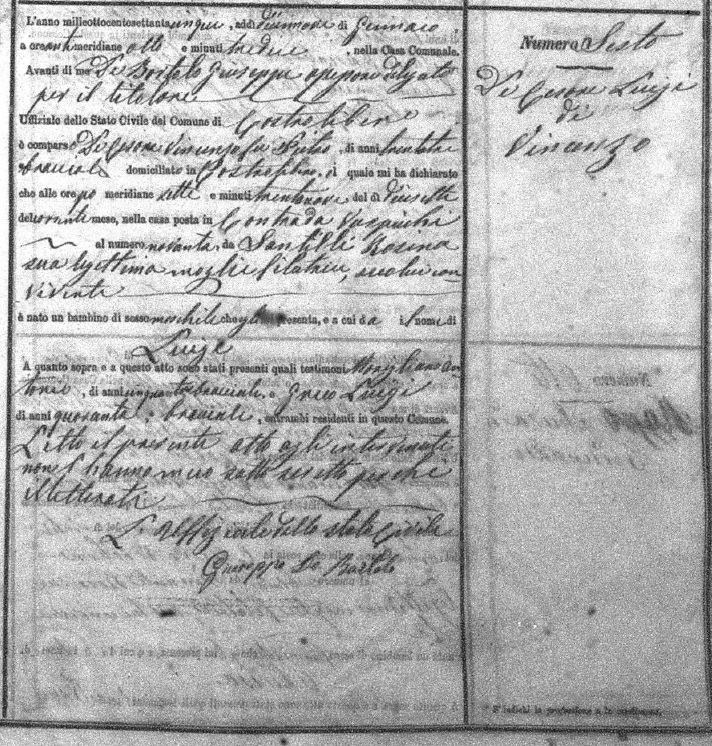 L'anno milleottocentosettantacinque, addì diecinnove di Gennaro
a ore anti meridiane otto e minuti tredici, nella Casa Comunale.
Avanti di me De Bartolo Giuseppe assessore delegato
per il titolare
Uffiziale dello Stato Civile del Comune di
è comparso De Cesare Vincenzo fu Pietro, di anni trentatre
bracciale domiciliato in il quale mi ha dichiarato
che alle ore po meridiane sette e minuti trentanove del dì diecisette
del corrente mese, nella casa posta in Contrada
al numero novanta, da Santelli Rosina
sua legittima moglie filatrice, secolui con
vivente
è nato un bambino di sesso maschile che mi presenta, e a cui dà il nome di
Luigi
A quanto sopra e a questo atto sono stati presenti quali testimoni An
tonio, di anni cinquanta bracciale, e Greco Luigi
di anni quaranta, bracciale, entrambi residenti in questo Comune.
Letto il presente atto agli intervenuti
non l'hanno meco sotto scritto perché
illetterati
L'Uffiziale dello stato Civile
Giuseppe De Bartolo
Numero Sesto
De Cesare Luigi
di
Vincenzo
Numero
* S'indichi la professione o la condizione.